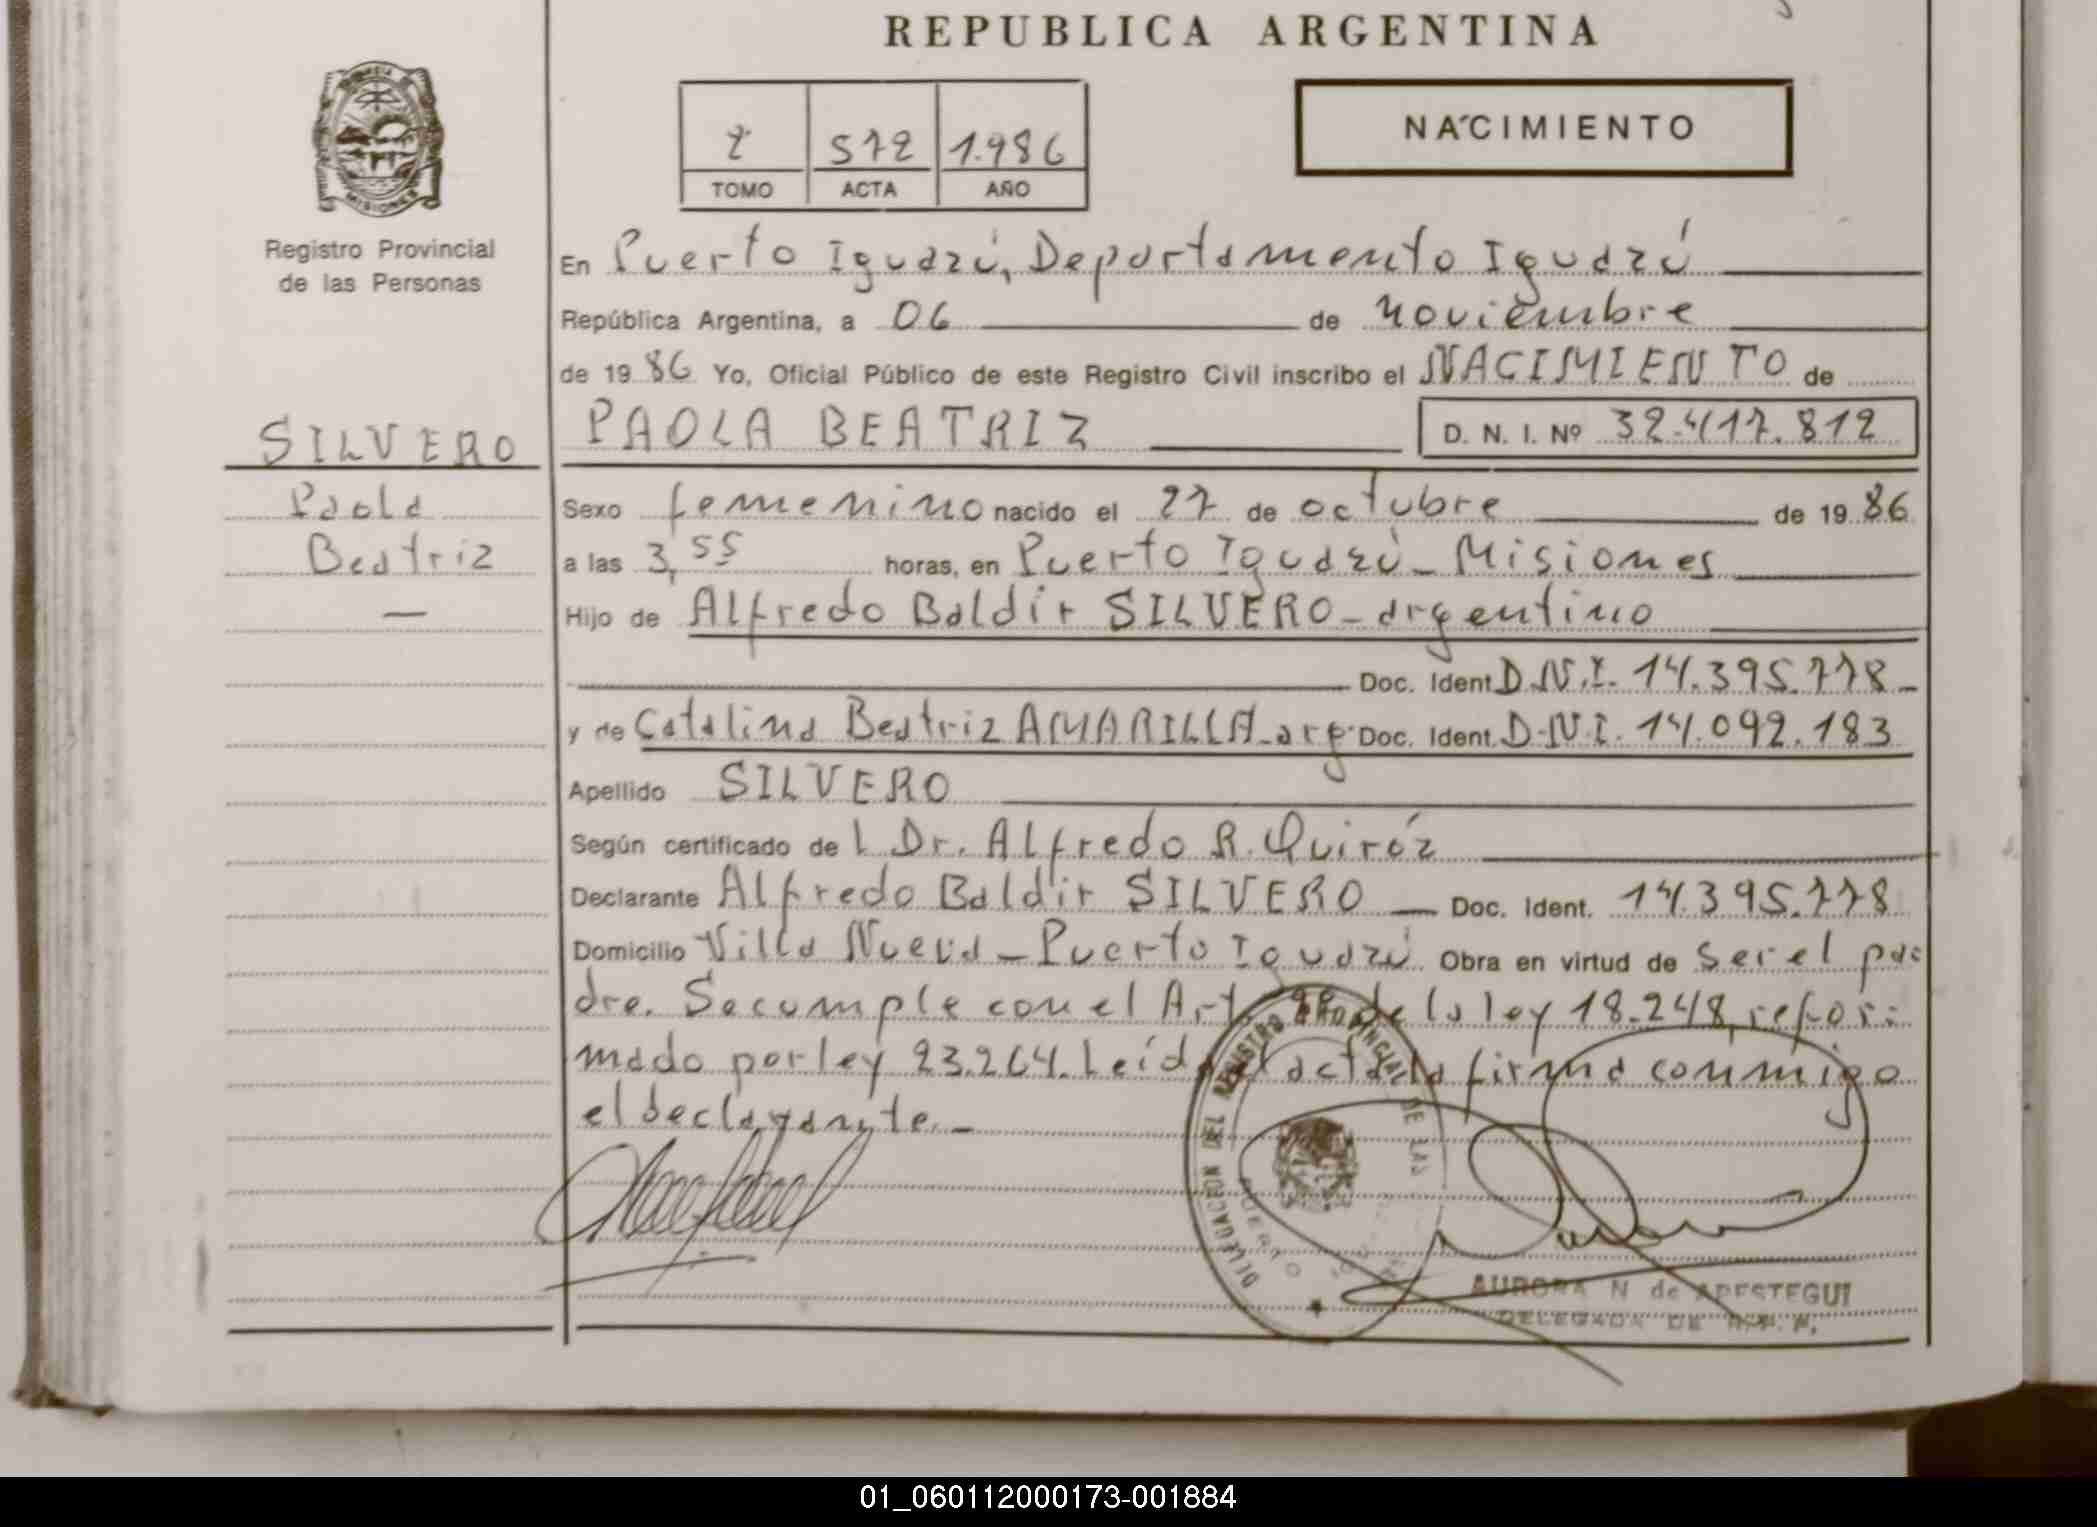 REPUBLICA ARGENTINA
NACIMIENTO
2 572 1.986
TOMO ACTA AÑO
MISIONES
Registro Provincial
de las Personas
SILVERO
Paola
Beatriz
—
En Puerto Iguazú, Departamento Iguazú
República Argentina, a 06 de noviembre
de 19 86 Yo, Oficial Público de este Registro Civil inscribo el NACIMIENTO de
PAOLA BEATRIZ D. N. I. Nº 32.417.812
Sexo femenino nacido el 27 de octubre de 19 86
a las 3,55 horas, en Puerto Iguazú - Misiones
Hijo de Alfredo Baldir SILVERO - argentino
Doc. Ident. D.N.I. 14.395.778 -
y de Catalina Beatriz AMARILLA - arg. Doc. Ident. D.N.I. 14.092.183
Apellido SILVERO
Según certificado de l Dr. Alfredo R. Quiróz
Declarante Alfredo Baldir SILVERO — Doc. Ident. 14.395.778
Domicilio Villa Nueva - Puerto Iguazú Obra en virtud de ser el pa=
dre. Se cumple con el Art. de la ley 18.248, refor=
mado por ley 23.264. Leída el acta la firma conmigo
el declarante. -
DELEGACION DEL REGISTRO PROVINCIAL DE LAS
PUERTO
AURORA N de APESTEGUI
DELEGADA DE R.P.P.
01_060112000173-001884